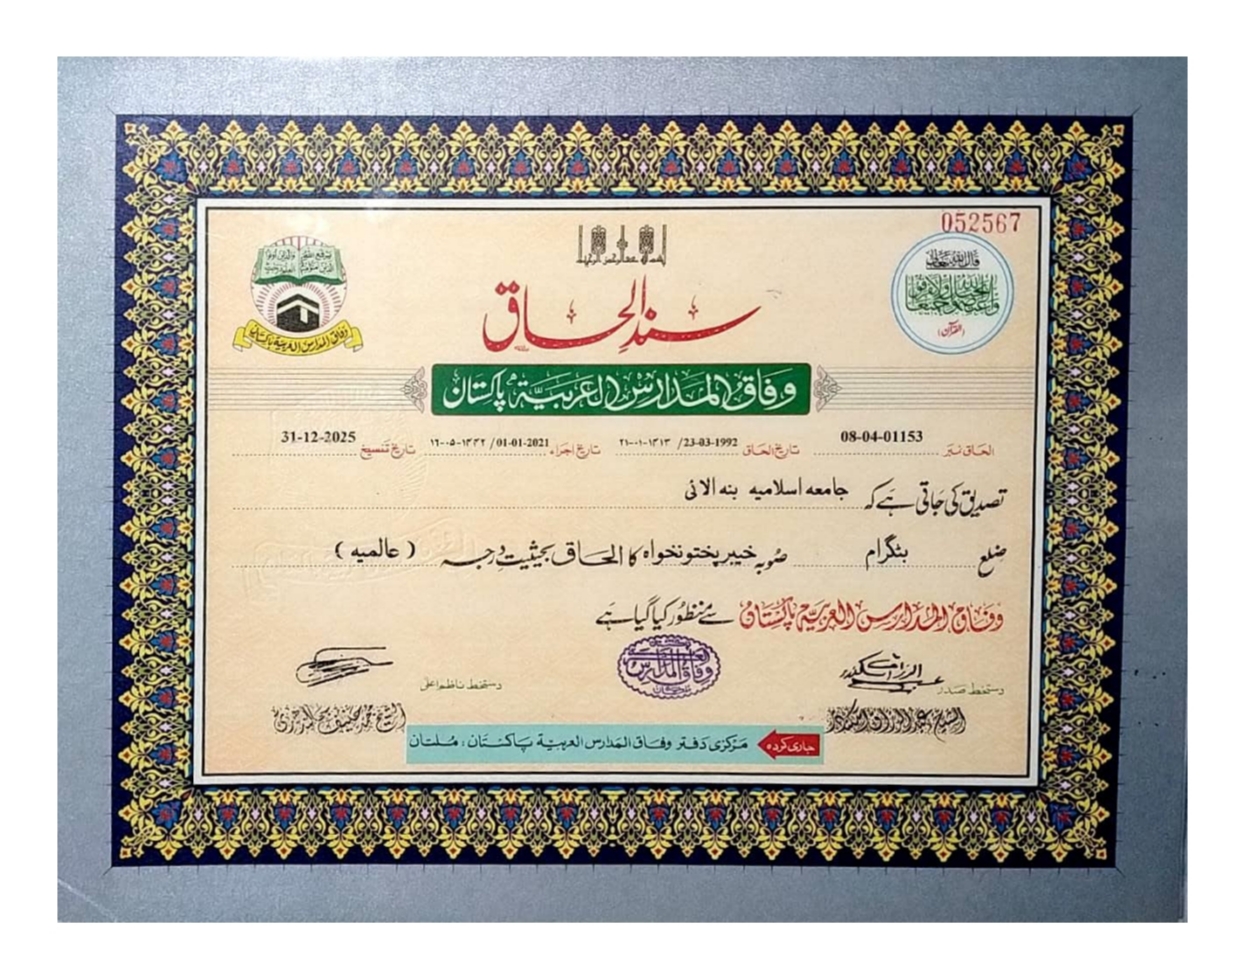 052567
بسم اللہ الرحمن الرحیم
قال اللہ تعالیٰ
(القرآن)
سندِ الحاق
وفاق المدارس العربیۃ پاکستان
وفاق المدارس العربیۃ پاکستان
الحاق نمبر 08-04-01153 تاریخ الحاق 23-03-1992 / ۲۱-۰۱-۱۴۱۳ تاریخ اجراء 01-01-2021 / ۱۶-۰۵-۱۴۴۲ تاریخ تنسیخ 31-12-2025
تصدیق کی جاتی ہے کہ جامعہ اسلامیہ بنہ الائی
ضلع بٹگرام صوبہ خیبر پختونخواہ کا الحاق بحیثیت درجہ ( عالمیہ )
وفاق المدارس العربیۃ پاکستان سے منظور کیا گیا ہے
دستخط صدر
دستخط ناظم اعلیٰ
جاری کردہ مرکزی دفتر وفاق المدارس العربیۃ پاکستان ، ملتان